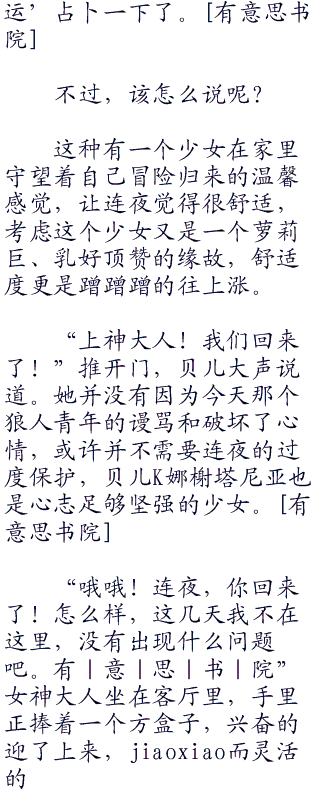 运’占卜一下了。[有意思书
院]
不过，该怎么说呢？
这种有一个少女在家里
守望着自己冒险归来的温馨
感觉，让连夜觉得很舒适，
考虑这个少女又是一个萝莉
巨、乳好顶赞的缘故，舒适
度更是蹭蹭蹭的往上涨。
“上神大人！我们回来
了！”推开门，贝儿大声说
道。她并没有因为今天那个
狼人青年的谩骂和破坏了心
情，或许并不需要连夜的过
度保护，贝儿K娜榭塔尼亚也
是心志足够坚强的少女。[有
意思书院]
“哦哦！连夜，你回来
了！怎么样，这几天我不在
这里，没有出现什么问题
吧。有｜意｜思｜书｜院”
女神大人坐在客厅里，手里
正捧着一个方盒子，兴奋的
迎了上来，jiaoxiao而灵活
的